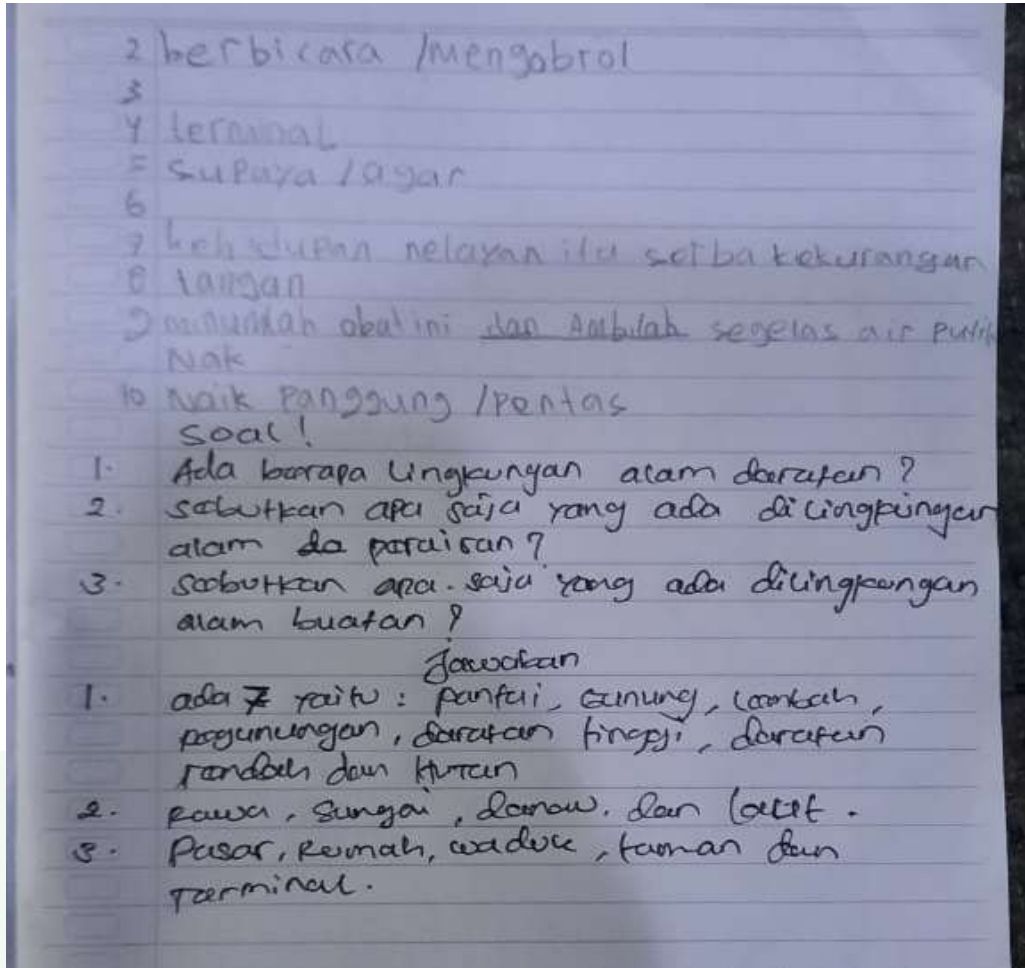 2 berbicara /mengobrol
3
4 terminal
5 supaya /agar
6
7 kehidupan nelayan itu serba kekurangan
8 tangan
9 minumlah obat ini dan Ambilah segelas air putih
Nak
10 Naik Panggung /pentas
Soal!
1. Ada barapa Lingkungan alam daratan?
2. sebutkan apa saja yang ada dilingkungan
alam da perairan?
3. Sebutkan apa saja yang ada dilingkungan
alam buatan?
Jawaban
1. ada 7 yaitu : pantai, Gunung, Lembah,
pegunungan, daratan tinggi, daratan
rendah dan Hutan
2. Rawa, Sungai, danaw. dan laut.
3. Pasar, Rumah, waduk, taman dan
Terminal.